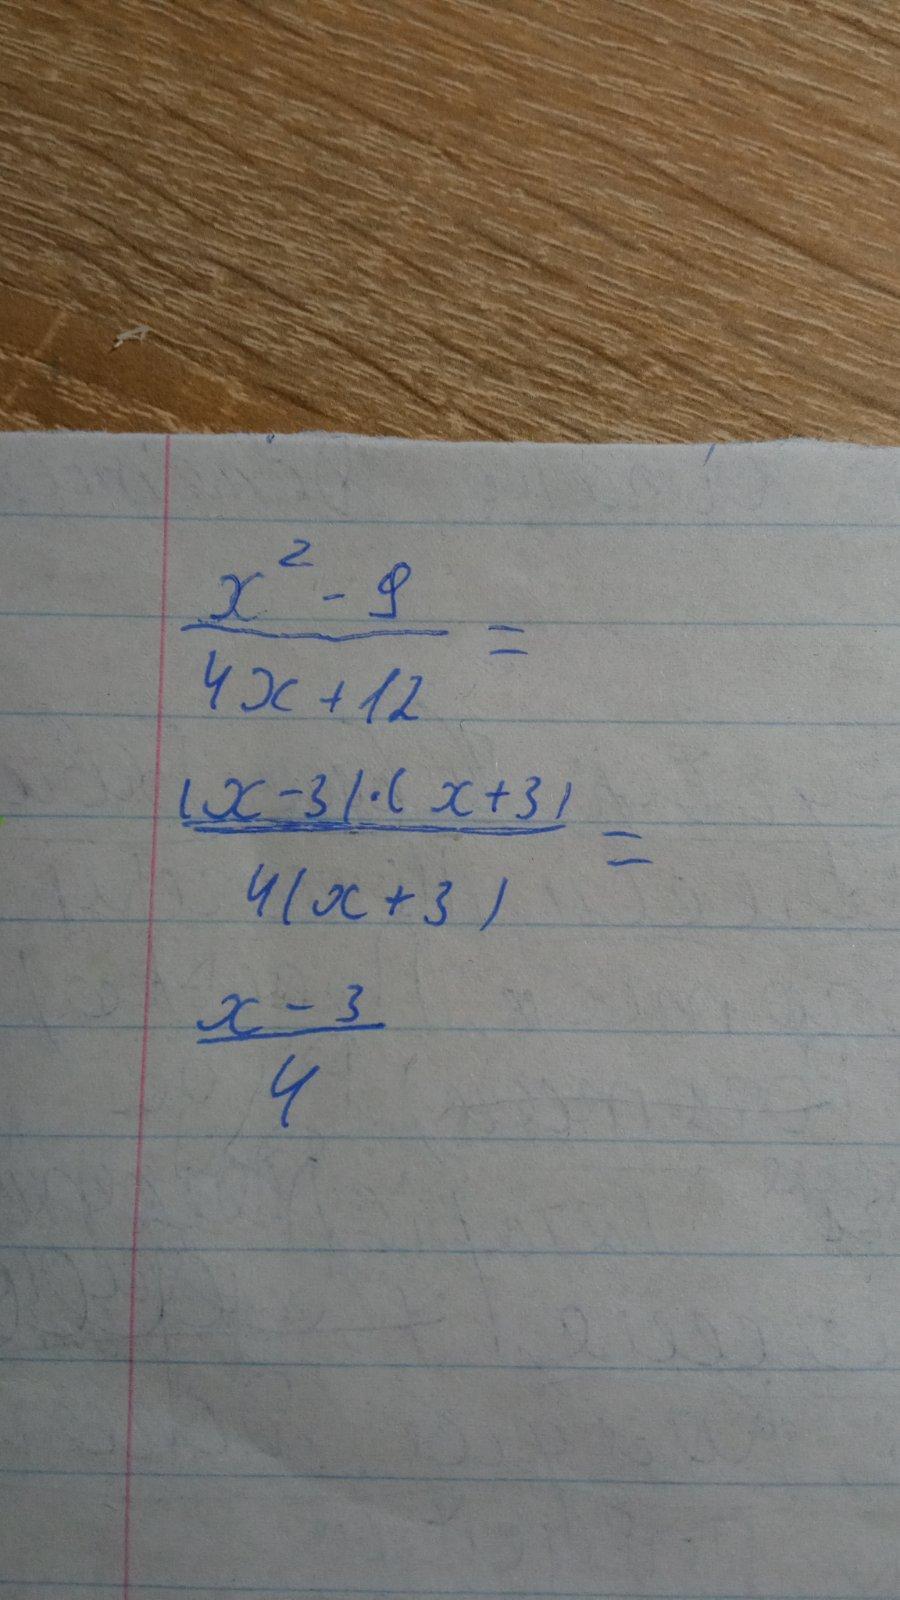 x² - 9
4x + 12 =
(x - 3) · (x + 3)
4(x + 3) =
x - 3
4